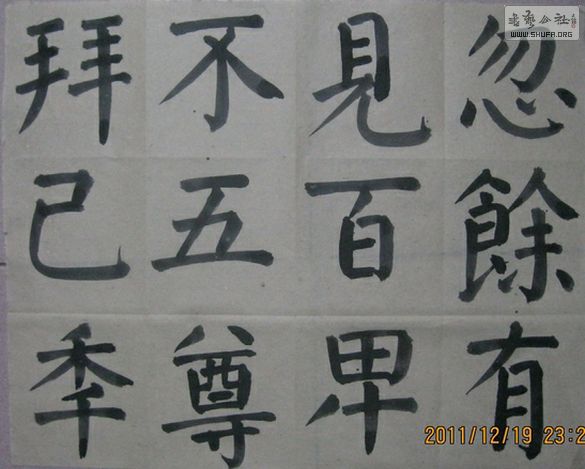 忽餘有
見百卑
不五尊
拜己季
書藝公社
WWW.SHUFA.ORG
2011/12/19 23:2